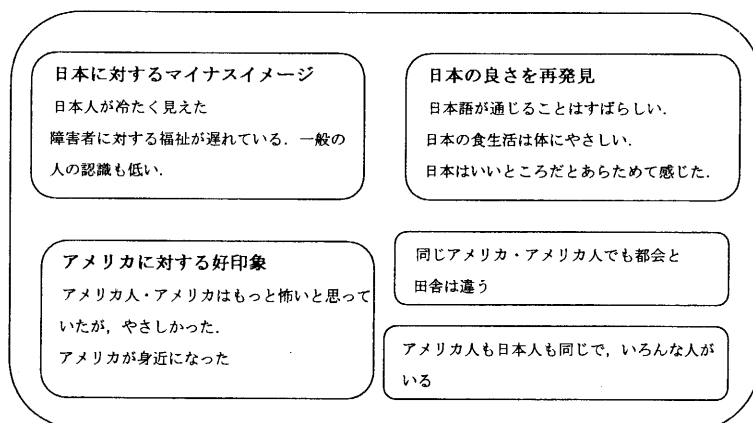 日本に対するマイナスイメージ
日本人が冷たく見えた
障害者に対する福祉が遅れている．一般の
人の認識も低い．
日本の良さを再発見
日本語が通じることはすばらしい．
日本の食生活は体にやさしい．
日本はいいところだとあらためて感じた．
アメリカに対する好印象
アメリカ人・アメリカはもっと怖いと思って
いたが，やさしかった．
アメリカが身近になった
同じアメリカ・アメリカ人でも都会と
田舎は違う
アメリカ人も日本人も同じで，いろんな人が
いる